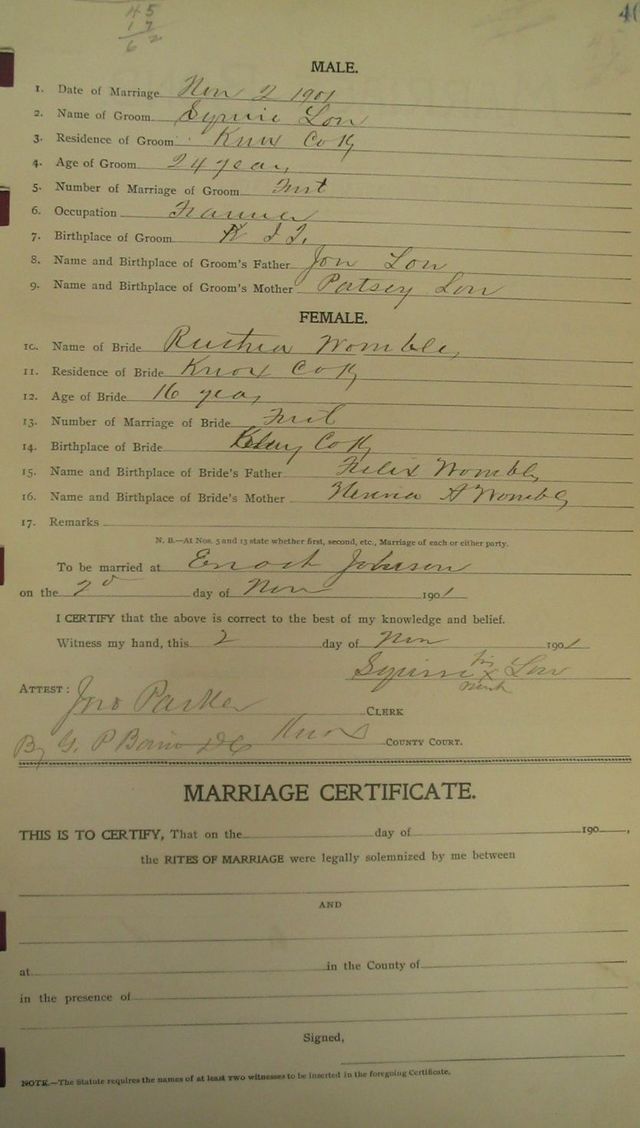 45
17
62
40
MALE.
1. Date of Marriage Nov 2 1901
2. Name of Groom Squire Lon
3. Residence of Groom Knox Co Ky
4. Age of Groom 24 years
5. Number of Marriage of Groom First
6. Occupation Farmer
7. Birthplace of Groom
8. Name and Birthplace of Groom's Father Jon Lon
9. Name and Birthplace of Groom's Mother Patsey Lon
FEMALE.
10. Name of Bride Womble
11. Residence of Bride Knox Co Ky
12. Age of Bride 16 years
13. Number of Marriage of Bride First
14. Birthplace of Bride Clay Co Ky
15. Name and Birthplace of Bride's Father Felix Womble
16. Name and Birthplace of Bride's Mother A Womble
17. Remarks
N. B.—At Nos. 5 and 13 state whether first, second, etc., Marriage of each or either party.
To be married at Enoch Johnson
on the 2d day of Nov 1901
I CERTIFY that the above is correct to the best of my knowledge and belief.
Witness my hand, this 2 day of Nov 1901
Squire his x mark Lon
ATTEST: Jno Parker CLERK
By G. P. DC Knox COUNTY COURT.
MARRIAGE CERTIFICATE.
THIS IS TO CERTIFY, That on the day of 190 ,
the RITES OF MARRIAGE were legally solemnized by me between
AND
at in the County of
in the presence of
Signed,
NOTE.—The Statute requires the names of at least TWO witnesses to be inserted in the foregoing Certificate.